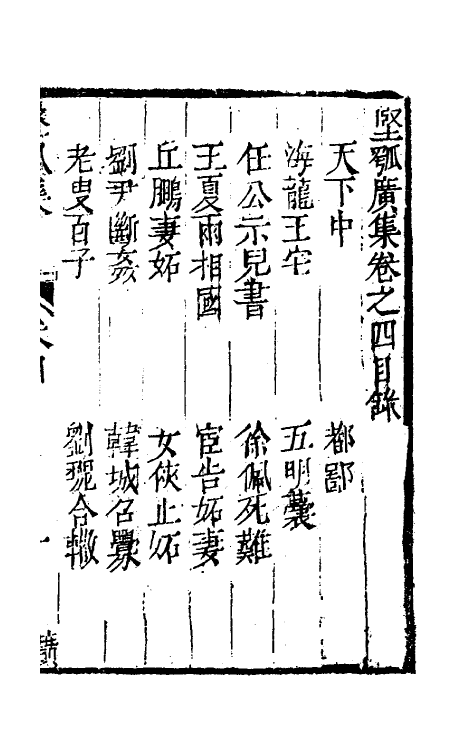 堅瓠廣集卷之四目錄
天下中　都鄙
海龍王宅　五明囊
任公示兒書　徐佩死難
王夏兩相國　宦告妬妻
丘鵬妻妬　女俠止妬
劉尹斷姦　韓城召釁
老叟百子　劉琨合轍